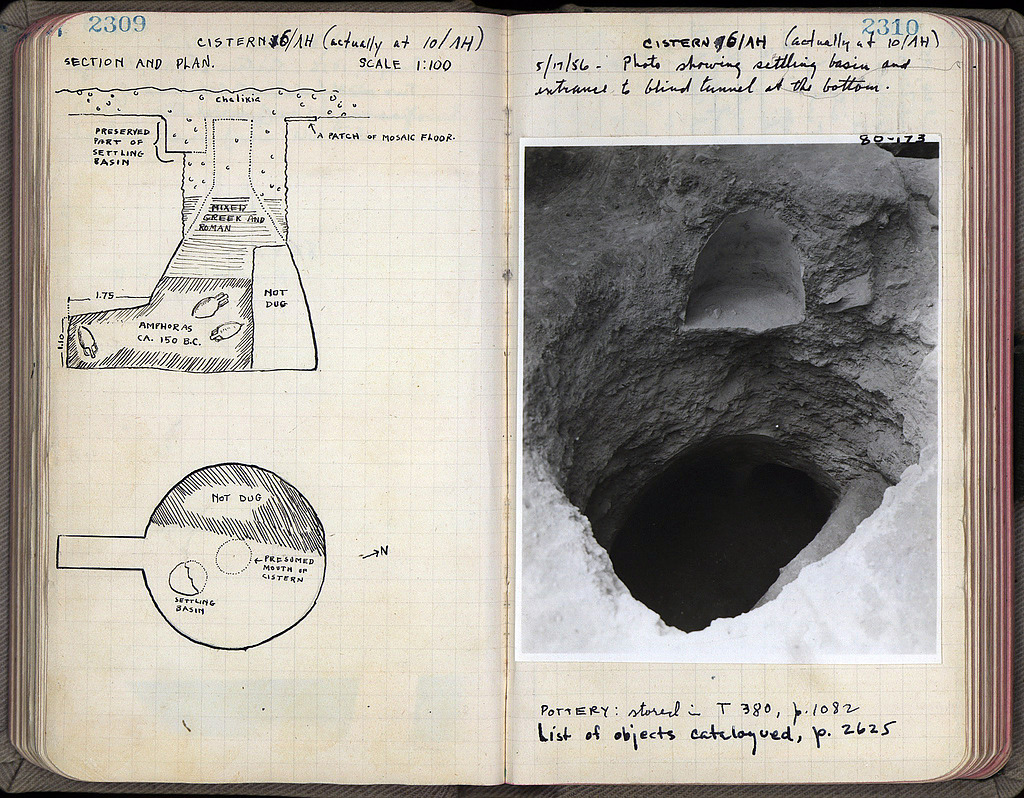 2309
CISTERN 6/AH (actually at 10/AH)
SECTION AND PLAN. SCALE 1:100
chalikia
PRESERVED
PART OF
SETTLING
BASIN
A PATCH OF MOSAIC FLOOR.
MIXED
GREEK AND
ROMAN
1.75
NOT
DUG
1.10
AMPHORAS
CA. 150 B.C.
NOT DUG
N
PRESUMED
MOUTH OF
CISTERN
SETTLING
BASIN
2310
CISTERN 6/AH (actually at 10/AH)
5/17/56 - Photo showing settling basin and
entrance to blind tunnel at the bottom.
80-173
POTTERY: stored in T 380, p.1082
List of objects catalogued, p. 2625